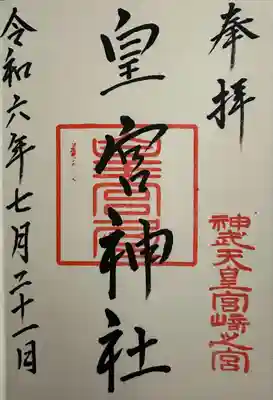 奉拝
神武天皇宮崎之宮
皇宮神社
令和六年七月二十一日